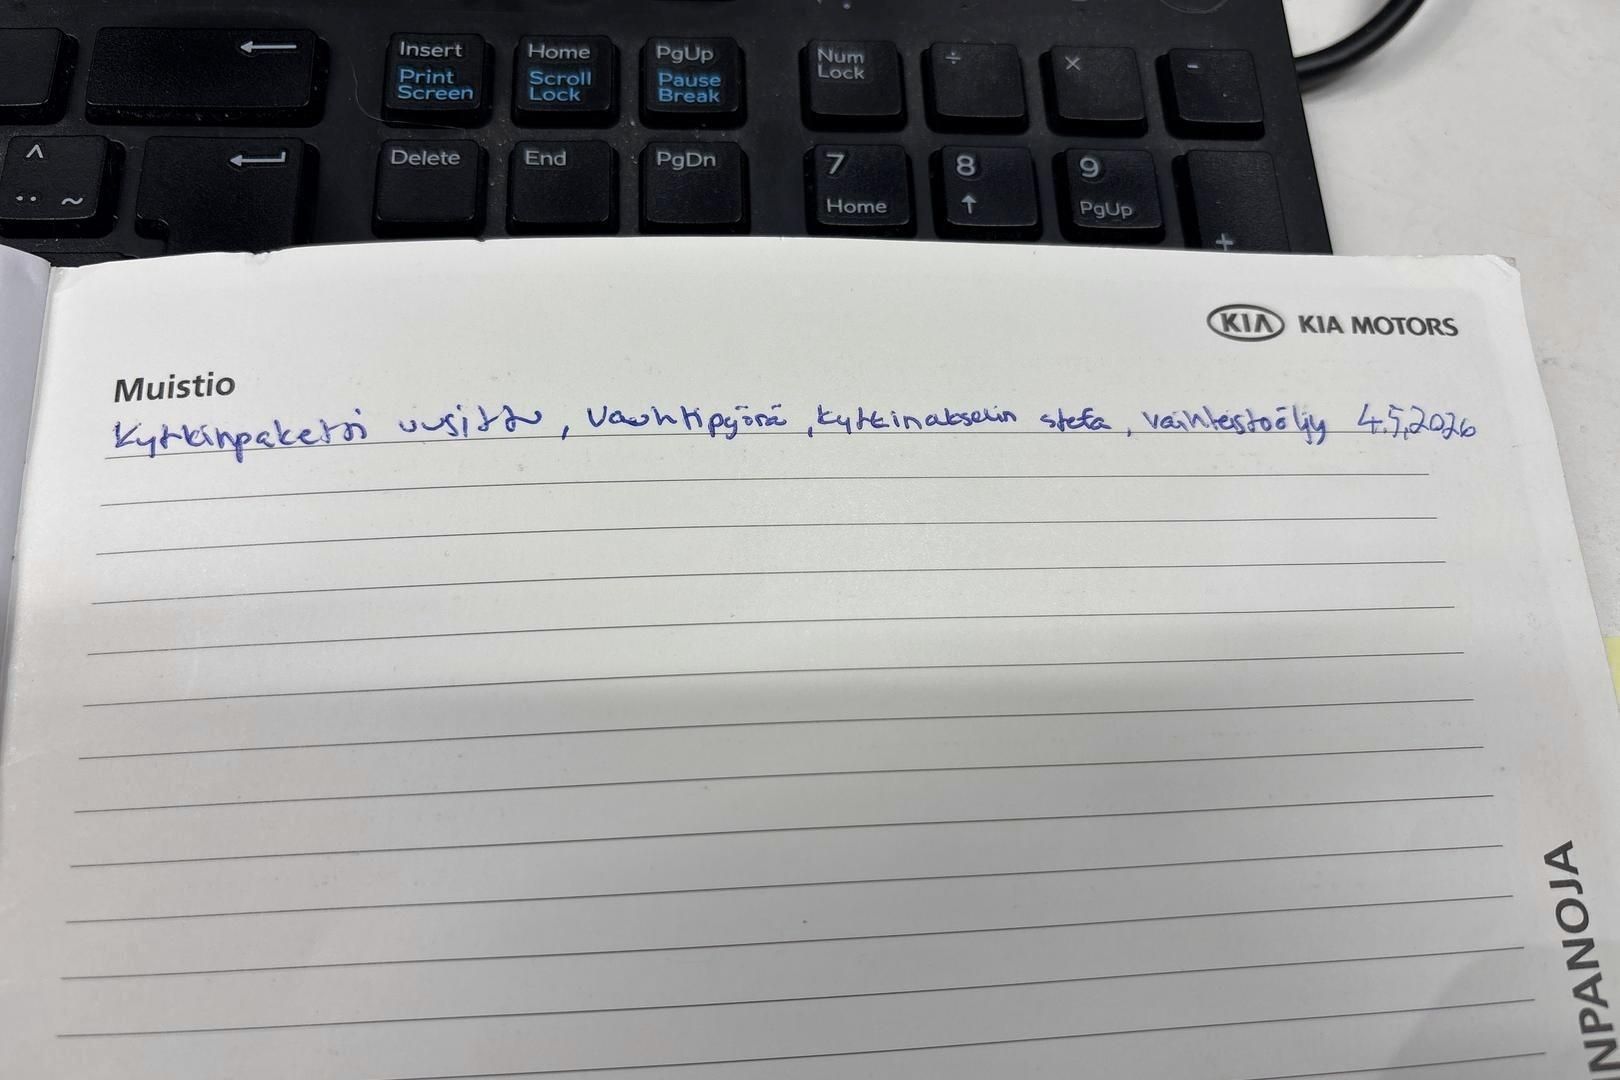 Insert
Print
Screen
Home
Scroll
Lock
PgUp
Pause
Break
Num
Lock
÷
×
-
^
¨ ~
Delete
End
PgDn
7
Home
8
↑
9
PgUp
+
KIA KIA MOTORS
Muistio
Kytkinpaketti uusittu, vauhtipyörä, kytkinakselin stefa, vaihteistoöljy 4.5.2026
NPANOJA